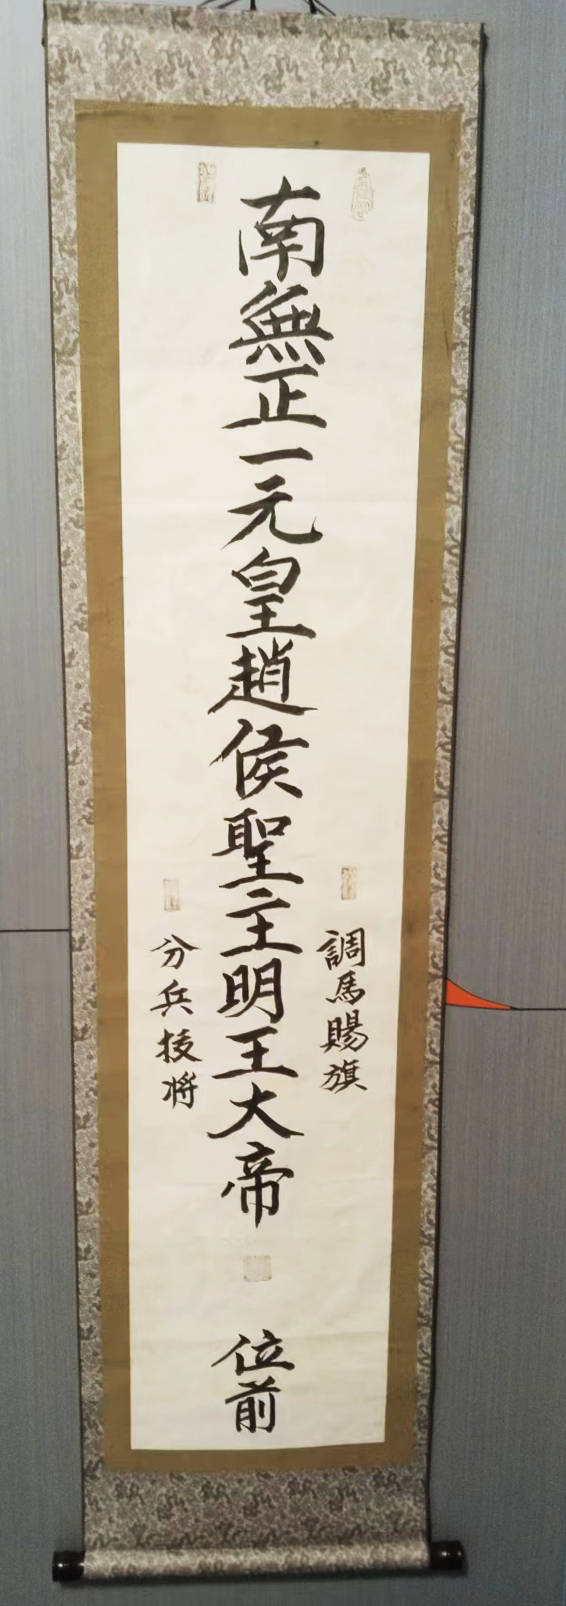 調馬賜旗
南無正一元皇趙侯聖主明王大帝
位前
分兵授将